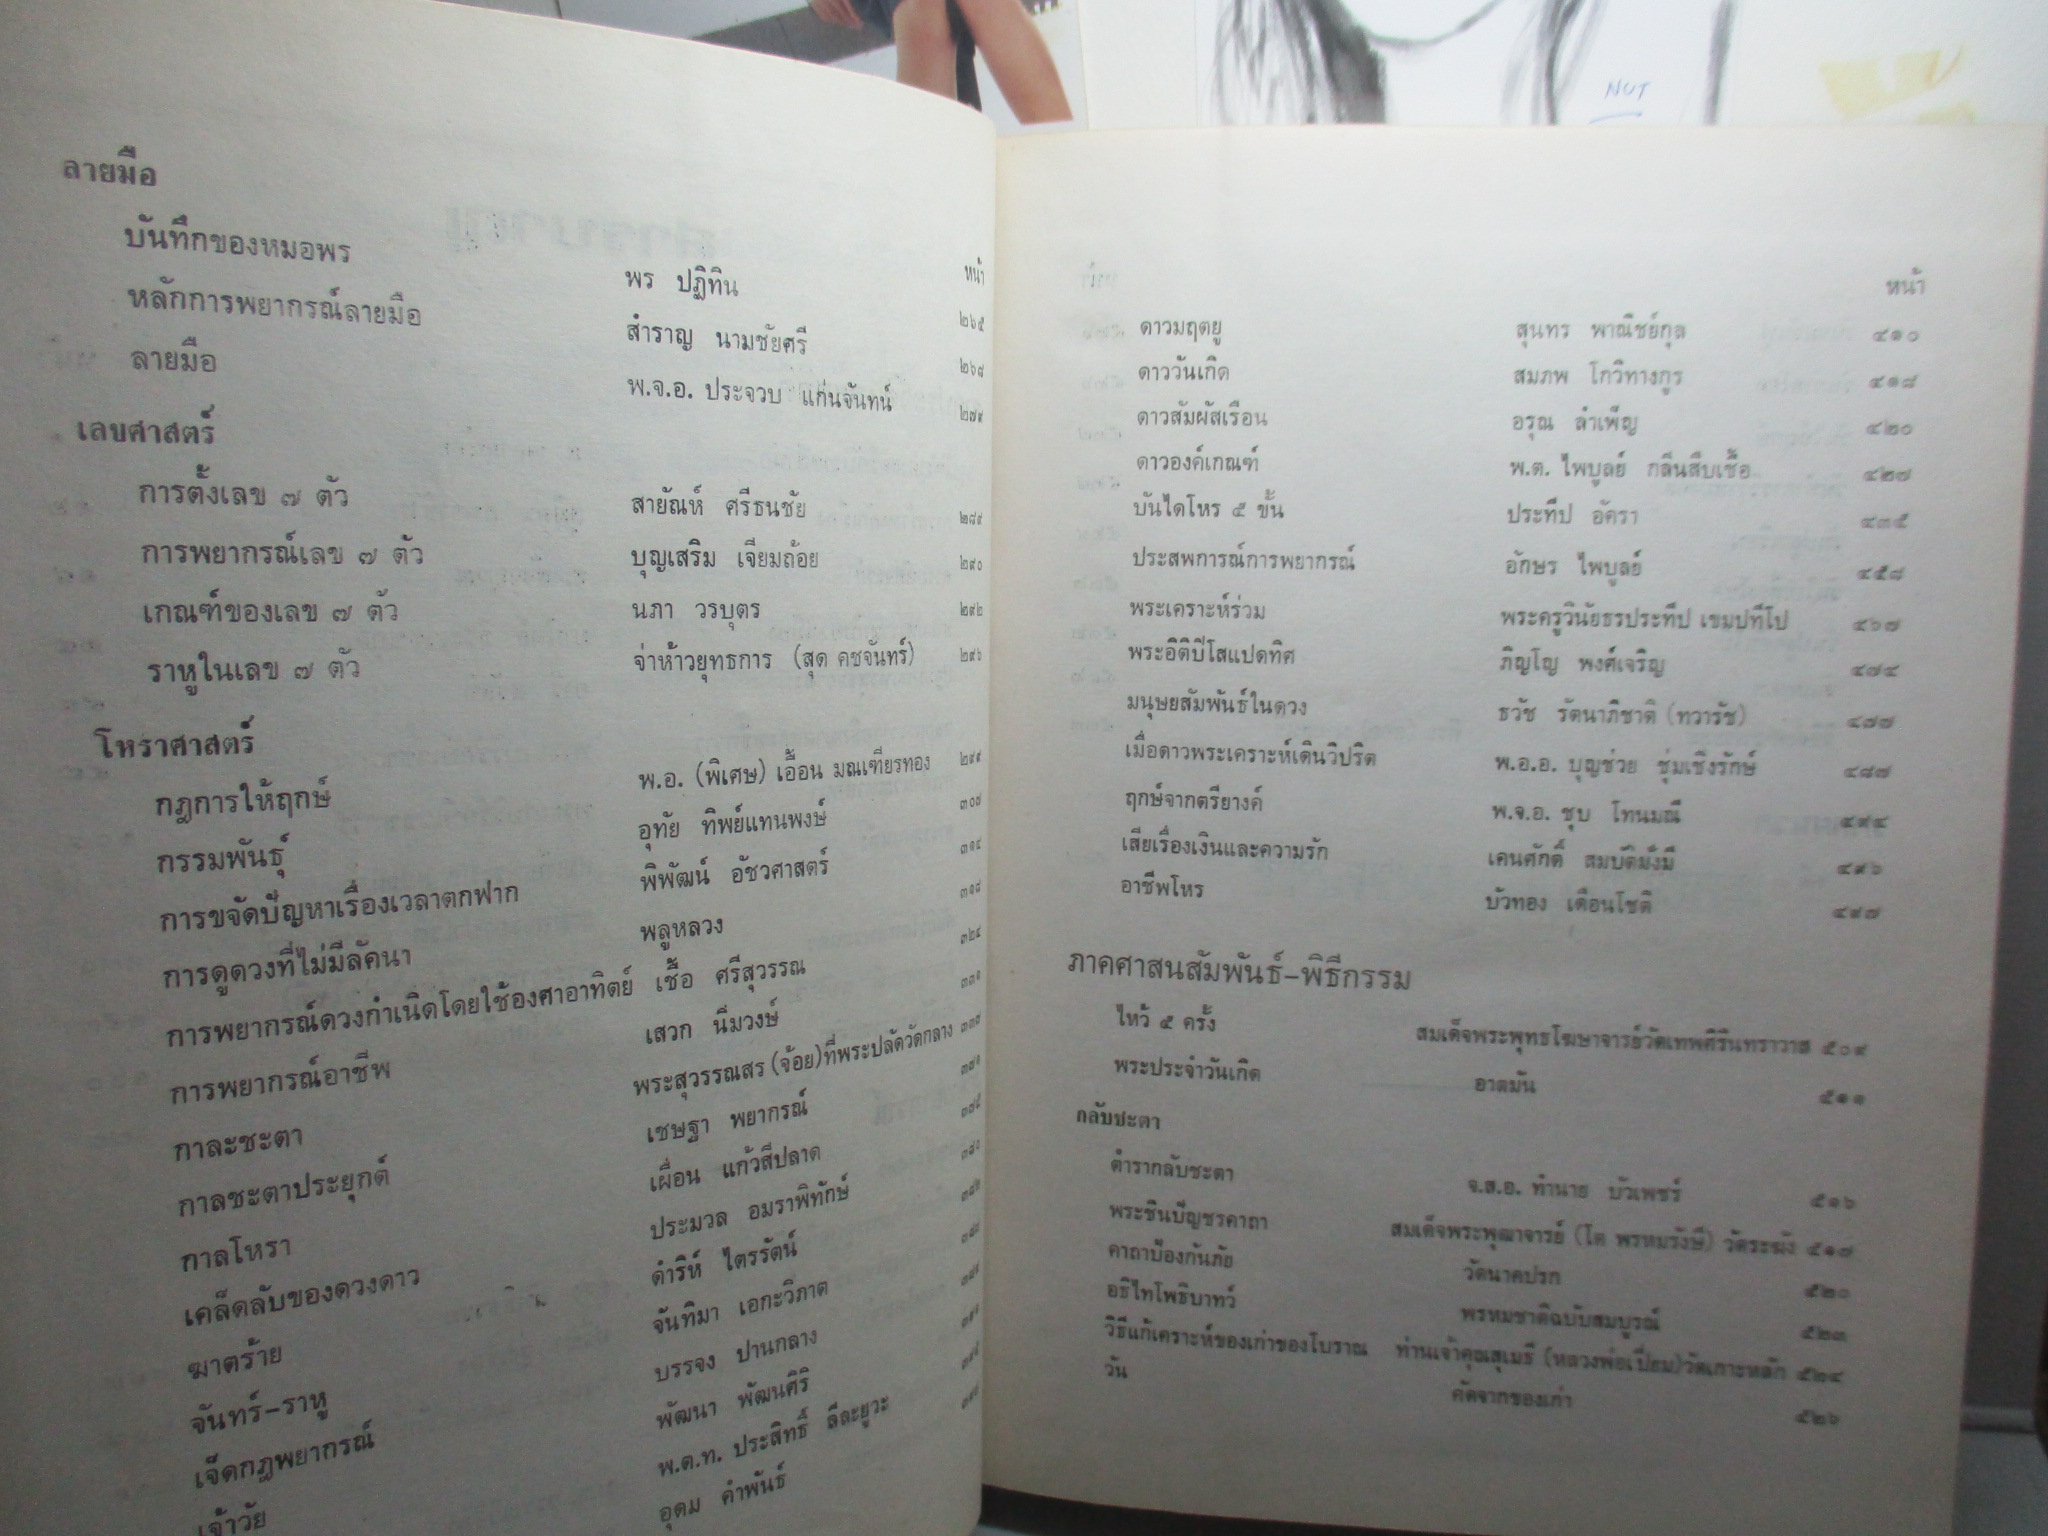 NUT
ลายมือ
หน้า
บันทึกของหมอพร พร ปฏิทิน ๒๖๕
หลักการพยากรณ์ลายมือ สำราญ นามชัยศรี ๒๖๘
ลายมือ พ.จ.อ. ประจวบ แก่นจันทน์ ๒๗๙
เลขศาสตร์
การตั้งเลข ๗ ตัว สายัณห์ ศรีธนชัย ๒๘๙
การพยากรณ์เลข ๗ ตัว บุญเสริม เจียมถ้อย ๒๙๐
เกณฑ์ของเลข ๗ ตัว นภา วรบุตร ๒๙๒
ราหูในเลข ๗ ตัว จ่าห้าวยุทธการ (สุด คชจันทร์) ๒๙๖
โหราศาสตร์
กฎการให้ฤกษ์ พ.อ. (พิเศษ) เอื้อน มณเฑียรทอง ๒๙๙
กรรมพันธุ์ อุทัย ทิพย์แทนพงษ์ ๓๐๗
การขจัดปัญหาเรื่องเวลาตกฟาก พิพัฒน์ อัชวศาสตร์ ๓๑๔
การดูดวงที่ไม่มีลัคนา พลูหลวง ๓๑๘
การพยากรณ์ดวงกำเนิดโดยใช้องศาอาทิตย์ เชื้อ ศรีสุวรรณ ๓๒๔
การพยากรณ์อาชีพ เสวก นิ่มวงษ์ ๓๓๑
กาละชะตา พระสุวรรณสร (จ้อย)ที่พระปลัดวัดกลาง ๓๓๗
กาลชะตาประยุกต์ เชษฐา พยากรณ์ ๓๗๑
กาลโหรา เผื่อน แก้วสีปลาด ๓๗๕
เคล็ดลับของดวงดาว ประมวล อมราพิทักษ์ ๓๘๐
ฆาตร้าย ดำริห์ ไตรรัตน์ ๓๘๒
จันทร์-ราหู จันทิมา เอกะวิภาต
เจ็ดกฎพยากรณ์ บรรจง ปานกลาง
เจ้าวัย พัฒนา พัฒนศิริ
พ.ต.ท. ประสิทธิ์ ลีละยูวะ
อุดม คำพันธ์
หน้า
ดาวมฤตยู สุนทร พาณิชย์กุล ๔๑๐
ดาววันเกิด สมภพ โกวิทางกูร ๔๑๘
ดาวสัมผัสเรือน อรุณ ลำเพ็ญ ๔๒๐
ดาวองค์เกณฑ์ พ.ต. ไพบูลย์ กลิ่นสืบเชื้อ ๔๒๗
บันไดโหร ๕ ขั้น ประทีป อัครา ๔๓๕
ประสพการณ์การพยากรณ์ อักษร ไพบูลย์ ๔๕๘
พระเคราะห์ร่วม พระครูวินัยธรประทีป เขมปทีโป ๔๖๗
พระอิติปิโสแปดทิศ ภิญโญ พงศ์เจริญ ๔๗๔
มนุษยสัมพันธ์ในดวง ธวัช รัตนาภิชาติ (ทวารัช) ๔๗๗
เมื่อดาวพระเคราะห์เดินวิปริต พ.อ.อ. บุญช่วย ชุ่มเชิงรักษ์ ๔๘๗
ฤกษ์จากตรียางค์ พ.จ.อ. ชุบ โทนมณี ๔๙๔
เสียเรื่องเงินและความรัก เดนศักดิ์ สมบัติมั่งมี ๔๙๖
อาชีพโหร บัวทอง เดือนโชติ ๔๙๗
ภาคศาสนสัมพันธ์-พิธีกรรม
ไหว้ ๕ ครั้ง สมเด็จพระพุทธโฆษาจารย์วัดเทพศิรินทราวาส ๕๐๙
พระประจำวันเกิด อาตมัน ๕๑๑
กลับชะตา
ตำรากลับชะตา จ.ส.อ. ทำนาย บัวเพชร์ ๕๑๖
พระชินบัญชรคาถา สมเด็จพระพุฒาจารย์ (โต พรหมรังษี) วัดระฆัง ๕๑๗
คาถาป้องกันภัย วัดนาคปรก ๕๒๐
อธิไทโพธิบาทว์ พรหมชาติฉบับสมบูรณ์ ๕๒๓
วิธีแก้เคราะห์ของเก่าของโบราณ ท่านเจ้าคุณสุเมธี (หลวงพ่อเปี่ยม)วัดเกาะหลัก ๕๒๔
วัน คัดจากของเก่า ๕๒๖